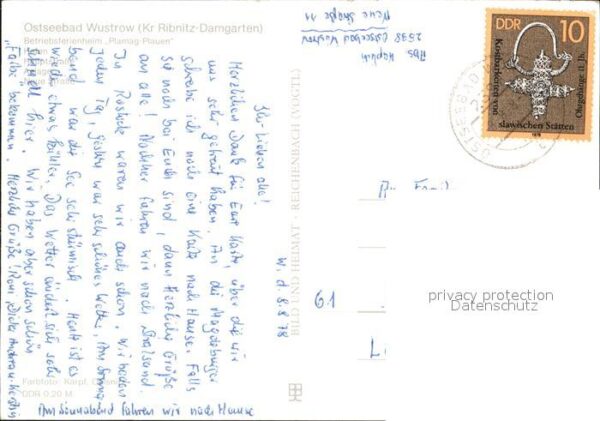 Ostseebad Wustrow (Kr Ribnitz-Damgarten)
Betriebsferienheim „Plamag-Plauen"
Hafen
Farbfoto: Karpf,
DDR 0,20 M
W. d 8.8.78
Ihr Lieben alle!
Herzlichen Dank für Eure Karte, über die wir
uns sehr gefreut haben. An die Magdeburger
schreibe ich noch eine Karte nach Hause. Falls
sie noch bei Euch sind, dann Herzliche Grüße
an alle! Nachher fahren wir nach Stralsund.
In Rostock waren wir auch schon. Wir baden
jeden Tag, gestern war sehr schönes Wetter, am Sonna
bend war die See sehr stürmisch. Heute ist es
wieder etwas kühler. Das Wetter ändert sich sehr
schnell hier. Wir haben aber schon schön
„Farbe" bekommen. Herzliche Grüße
Am Sonnabend fahren wir nach Hause
BILD UND HEIMAT · REICHENBACH (VOGTL)
Abs
2598 Ostseebad Wustrow
Neue Straße 11
DDR 10
Kostbarkeiten von
slawischen Stätten
Ohrgehänge 11. Jh.
1978
An Fam
61
L
privacy protection
Datenschutz